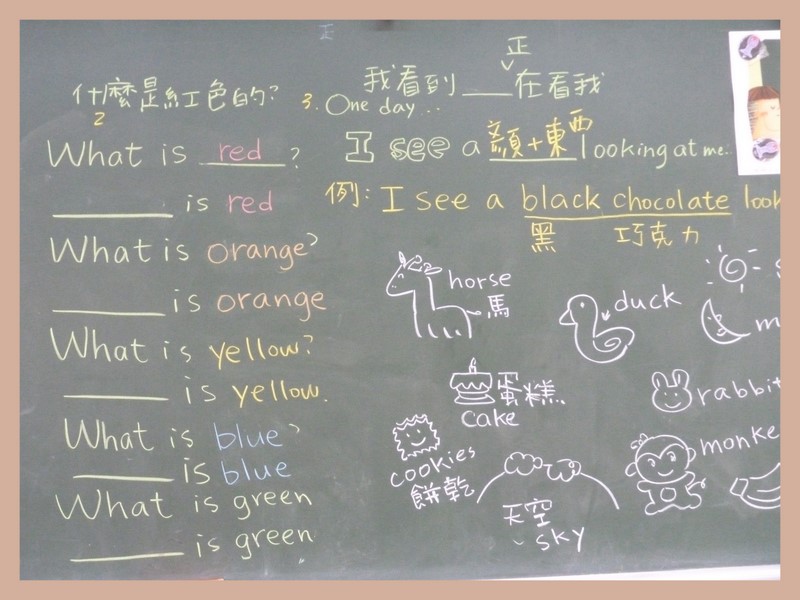 什麼是紅色的?
2
What is red ?
is red
What is orange?
is orange
What is yellow?
is yellow.
What is blue?
is blue
What is green
is green
正
我看到 在看我
3. One day...
I see a 顏+東西 looking at me.
例: I see a black chocolate look
黑 巧克力
horse
馬
duck
蛋糕
cake
rabbit
cookies
餅乾
monke
天空
sky